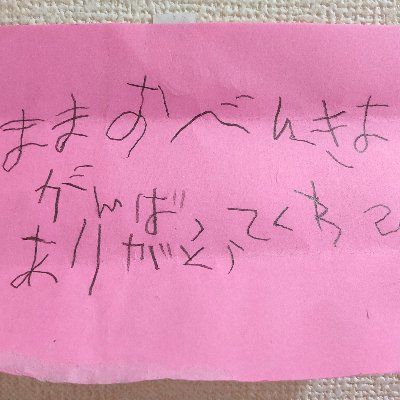 ままおべんきよ
がんばってくれて
ありがとう